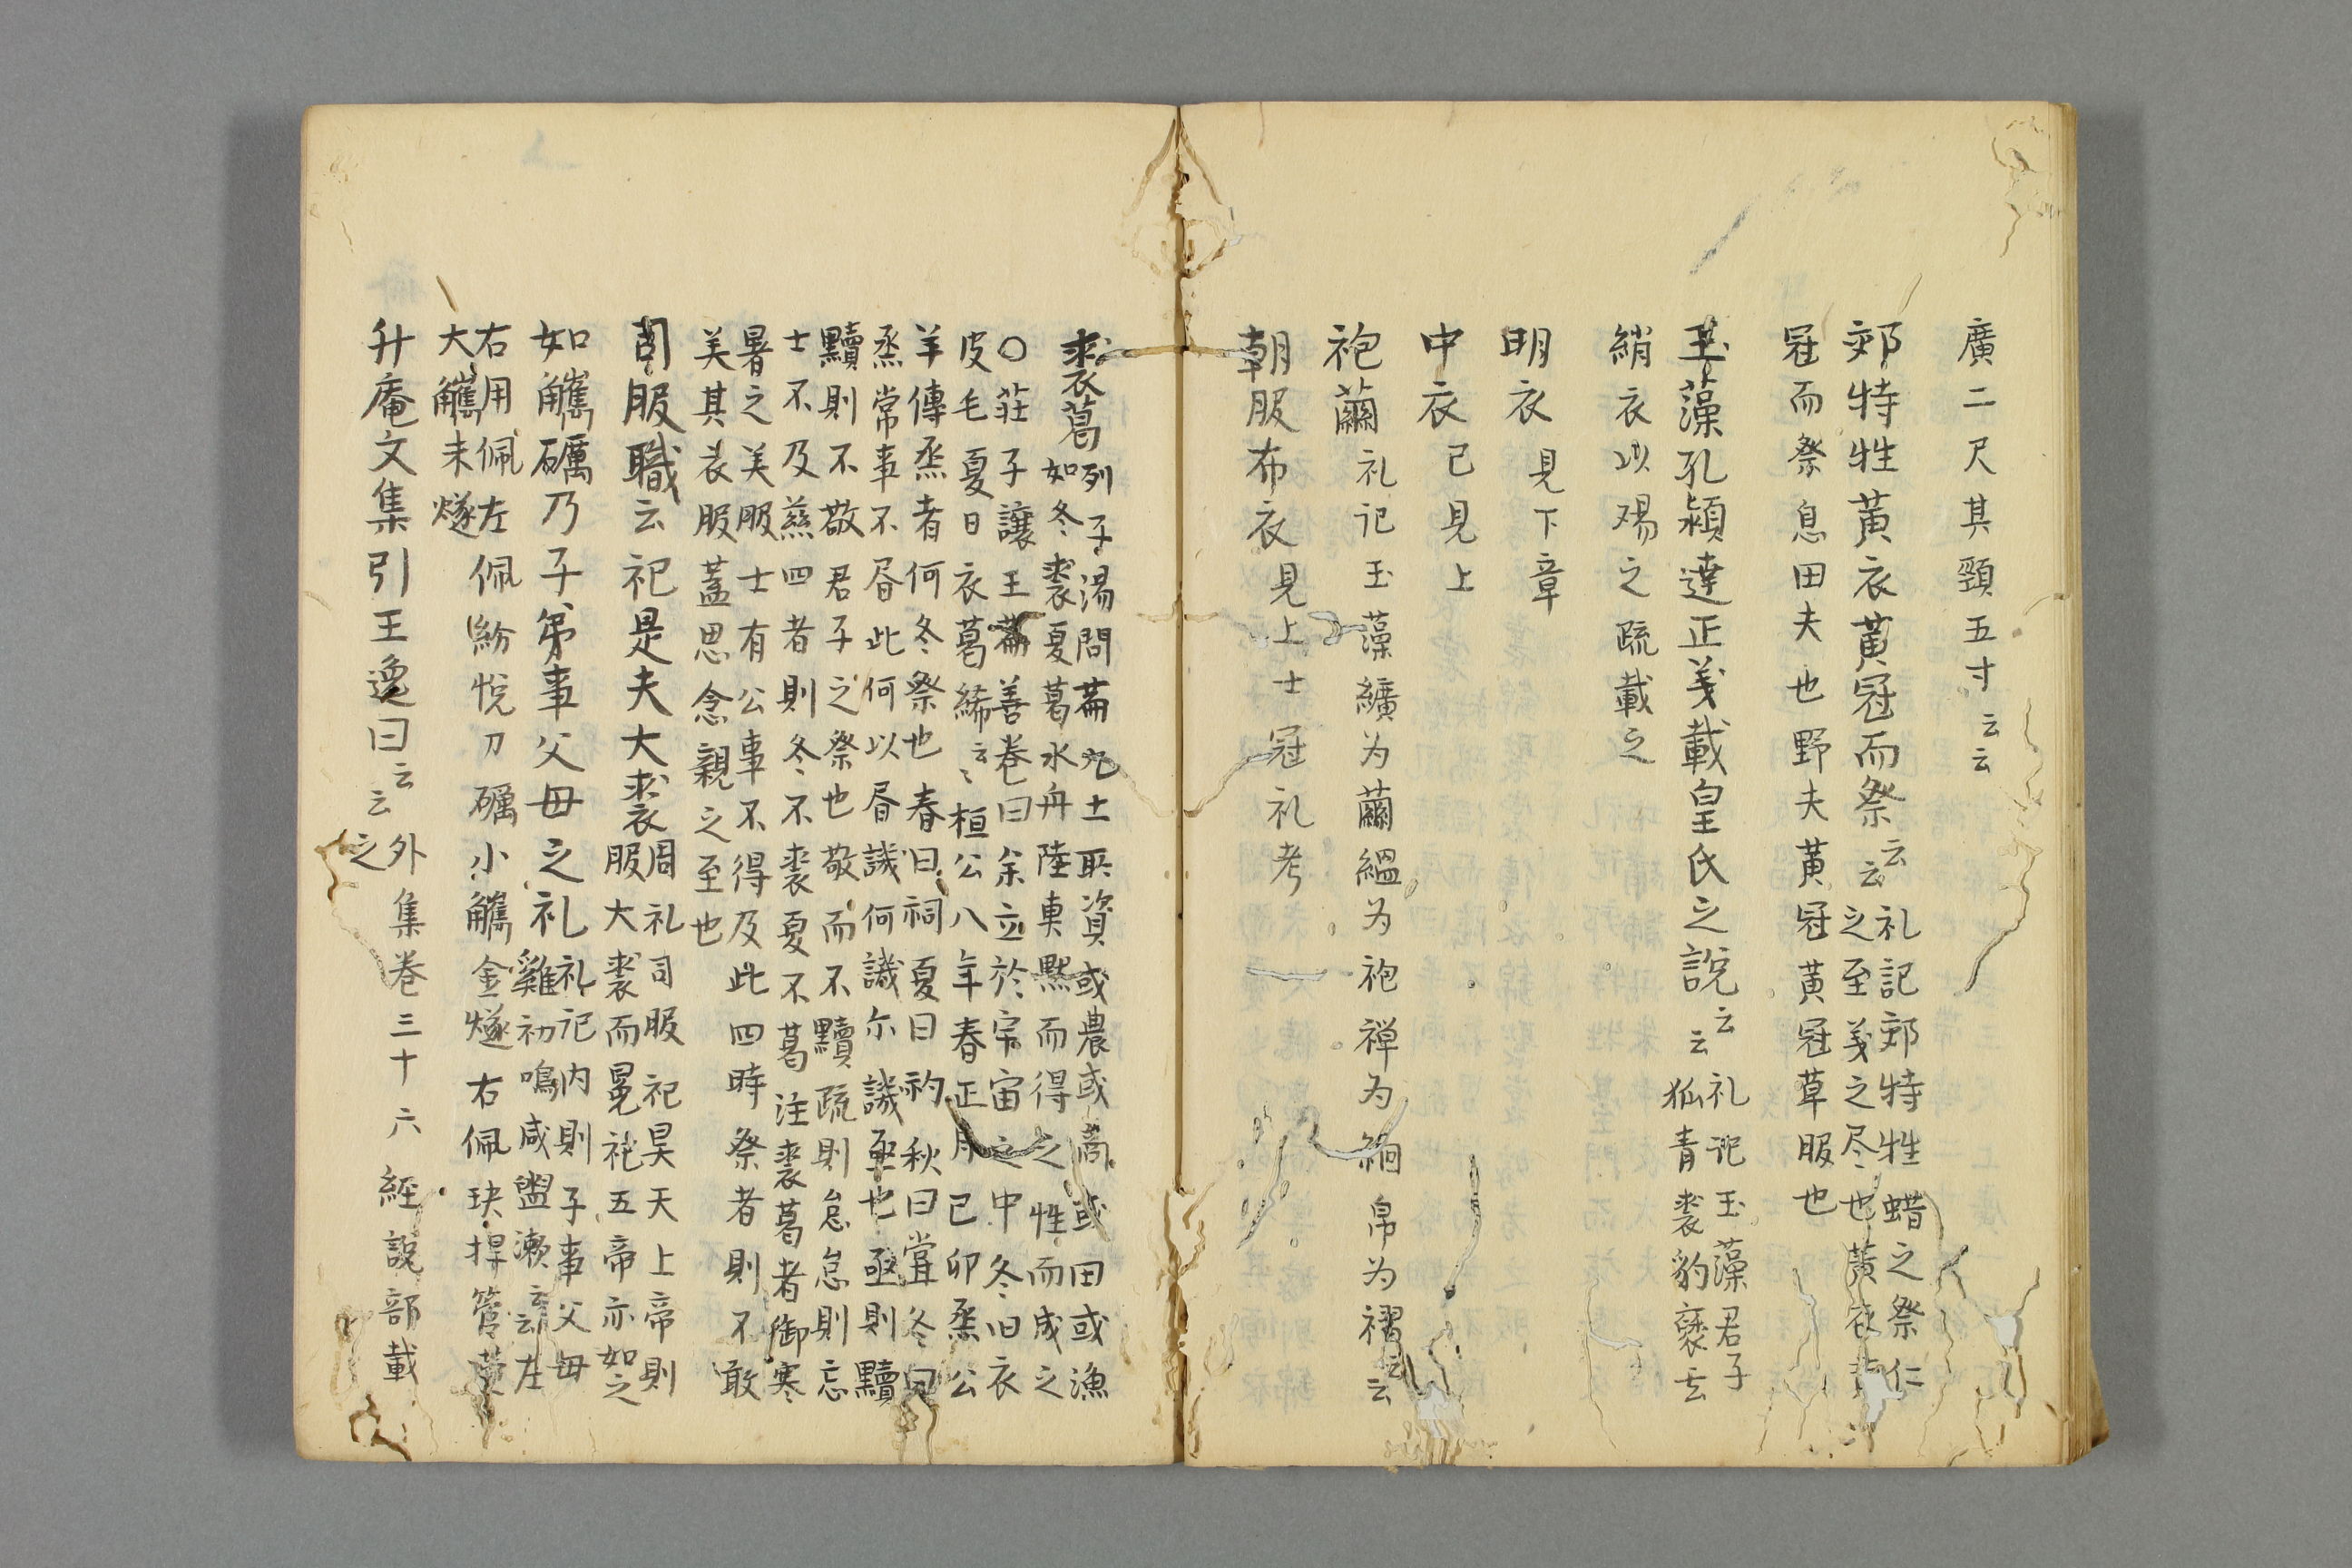 廣二尺其頸五寸云云
郊特牲黃衣黃冠而祭云云礼記郊特牲蜡之祭仁
之至義之尽也黃衣黃
冠而祭息田夫也野夫黃冠黃冠草服也
玉藻孔穎達正義載皇氏之說云云礼記玉藻君子
狐青裘豹褎玄
綃衣以裼之疏載之
明衣見下章
中衣已見上
袍繭礼记玉藻纊为繭縕为袍禅为絅帛为褶云云
朝服布衣見上士冠礼考
裘葛列子湯問萹九土所資或農或商或田或漁
如冬裘夏葛水舟陸車黙而得之性而成之
〇荘子讓王萹善卷曰余立於宗宙之中冬日衣
皮毛夏日衣葛絺云〻桓公八年春正月己卯烝公
羊傳烝者何冬祭也春曰祠夏曰礿秋曰甞冬曰
烝常事不昏此何以昏譏何譏尓譏亟也亟則黷
黷則不敬君子之祭也敬而不黷疏則怠怠則忘
士不及茲四者則冬不裘夏不葛注裘葛者御寒
暑之美服士有公事不得及此四時祭者則不敢
美其衣服蓋思念親之至也
司服職云祀是夫大裘周礼司服祀昊天上帝則
服大裘而冕祀五帝亦如之
如觿礪乃子弟事父母之礼礼记内則子事父母
雞初鳴咸盥漱云云左
右用佩左佩紛帨刀礪小觿金燧右佩玦捍管
大觿未燧
升庵文集引王逸曰云云外集卷三十六經說部載
之